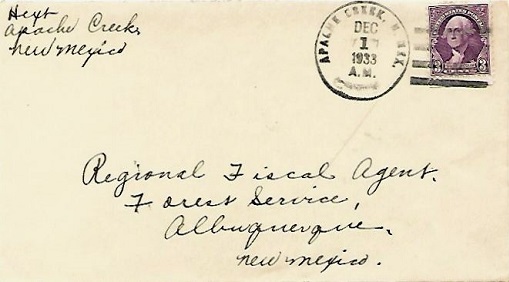 Hext
Apache Creek,
New Mexico
APACHE CREEK, N. MEX.
DEC
1
1933
A.M.
3 3
Regional Fiscal Agent.
Forest Service,
Albuquerque,
New Mexico.